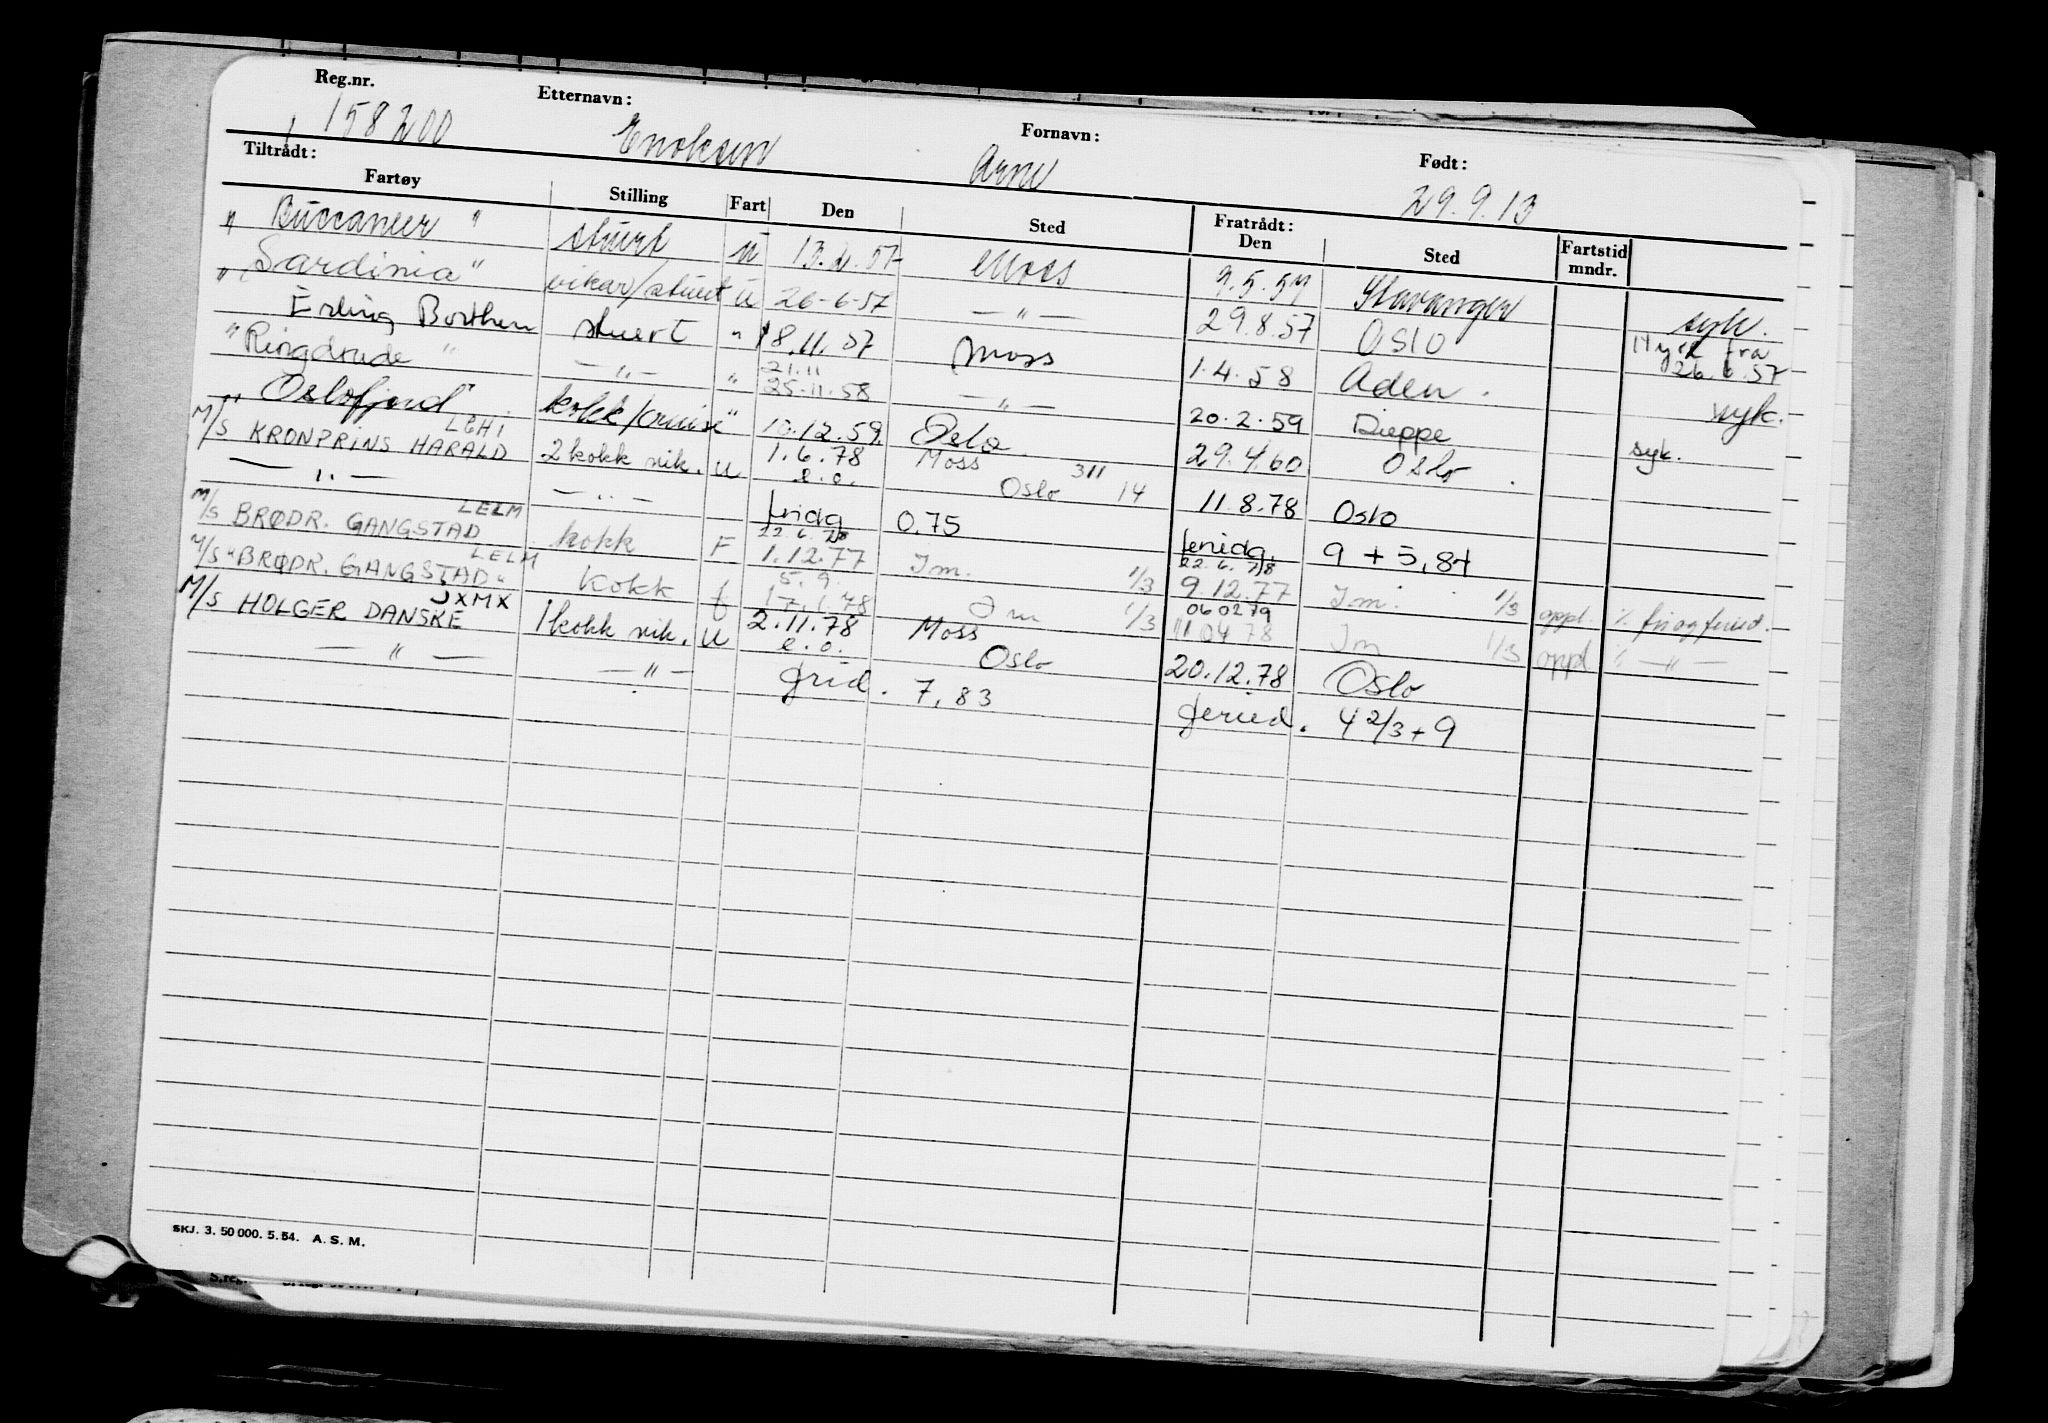 Reg.nr. Etternavn: Fornavn: Født:
158200 Enoksen Arne 29.9.13
Tiltrådt: Fratrådt:
Fartøy Stilling Fart Den Sted Den Sted Fartstid mndr.
" Buccaneer " stuert u 13. 2. 57 Moss 9.5.57 Stavanger syk.
" Sardinia " vikar/stuert u 26-6-57 — " — 29.8.57 Oslo Hyrt fra 26.6.57
Erling Borthen stuert " 18.11.57 Moss 1.4.58 Aden. syk.
" Ringdrude " — " — " 21.11 25-11-58 — " — 20.2.59 Dieppe syk.
" Oslofjord " kokk/cruise " 10.12.59. Oslo 29.4.60 Oslo.
M/S KRONPRINS HARALD LEHI 2 kokk vik. u 1.6.78 Moss 311 11.8.78 Oslo
— " — — " — e.o. Oslo 14
fridg 0.75 feriedg. 9 + 5,84
M/S BRØDR. GANGSTAD LELM kokk F 22.6.78 1.12.77 Jm. 1/3 22.6.78 9.12.77 Jm. 1/3 oppl. % fri og feried.
M/S "BRØDR. GANGSTAD" LELM kokk f 5.9. 17.1.78 Jm 1/3 060279 110478 Jm 1/3 oppl % — " —
M/S HOLGER DANSKE JXMX 1 kokk vik. u 2.11.78 Moss 20.12.78 Oslo
— " — — " — e.o. Oslo
frid. 7,83 feried. 4 2/3 + 9
SKJ. 3. 50 000. 5. 54. A. S. M.